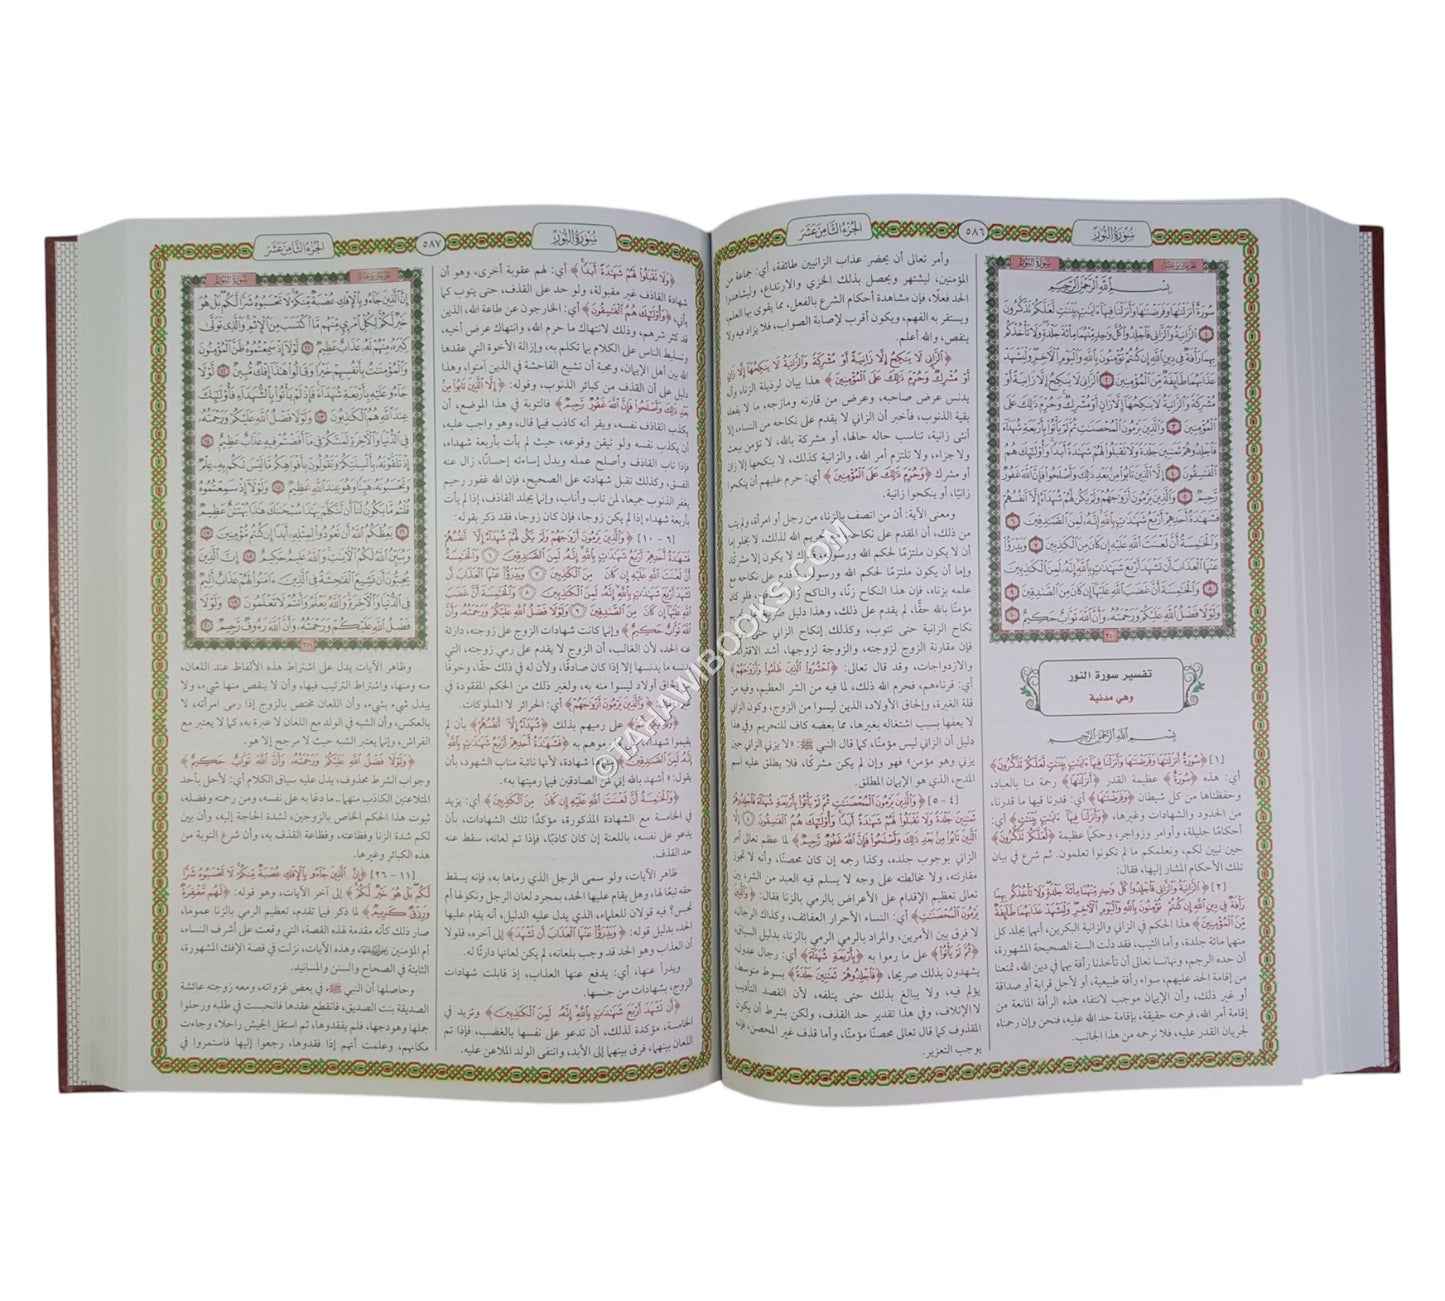 سورة النور
٥٨٦
الجزء الثامن عشر
بسم الله الرحمن الرحيم
سورة أنزلناها وفرضناها وأنزلنا فيها ءايات بينات لعلكم تذكرون
١ الزانية والزاني فاجلدوا كل واحد منهما مائة جلدة ولا تأخذكم
بهما رأفة في دين الله إن كنتم تؤمنون بالله واليوم الآخر وليشهد
عذابهما طائفة من المؤمنين ٢ الزاني لا ينكح إلا زانية أو
مشركة والزانية لا ينكحها إلا زان أو مشرك وحرم ذلك على
المؤمنين ٣ والذين يرمون المحصنات ثم لم يأتوا بأربعة شهداء
فاجلدوهم ثمانين جلدة ولا تقبلوا لهم شهادة أبدا وأولئك هم
الفاسقون ٤ إلا الذين تابوا من بعد ذلك وأصلحوا فإن الله غفور
رحيم ٥ والذين يرمون أزواجهم ولم يكن لهم شهداء إلا أنفسهم
فشهادة أحدهم أربع شهادات بالله إنه لمن الصادقين ٦
والخامسة أن لعنت الله عليه إن كان من الكاذبين ٧ ويدرؤا
عنها العذاب أن تشهد أربع شهادات بالله إنه لمن الكاذبين
٨ والخامسة أن غضب الله عليها إن كان من الصادقين ٩
ولولا فضل الله عليكم ورحمته وأن الله تواب حكيم ١٠
٣٥٠
تفسير سورة النور
وهي مدنية
بسم الله الرحمن الرحيم
[١] ﴿سورة أنزلناها وفرضناها وأنزلنا فيها ءايات بينات لعلكم تذكرون﴾
أي: هذه ﴿سورة﴾ عظيمة القدر ﴿أنزلناها﴾ رحمة منا بالعباد،
وحفظناها من كل شيطان ﴿وفرضناها﴾ أي: قدرنا فيها ما قدرنا،
من الحدود والشهادات وغيرها، ﴿وأنزلنا فيها ءايات بينات﴾ أي:
أحكامًا جليلة، وأوامر وزواجر، وحكمًا عظيمة ﴿لعلكم تذكرون﴾
حين نبين لكم، ونعلمكم ما لم تكونوا تعلمون. ثم شرع في بيان
تلك الأحكام المشار إليها، فقال:
[٢] ﴿الزانية والزاني فاجلدوا كل واحد منهما مائة جلدة ولا تأخذكم بهما
رأفة في دين الله إن كنتم تؤمنون بالله واليوم الآخر وليشهد عذابهما طائفة
من المؤمنين﴾ هذا الحكم في الزاني والزانية البكرين، أنهما يجلد كل
منهما مائة جلدة، وأما الثيب، فقد دلت السنة الصحيحة المشهورة،
أن حده الرجم، ونهانا تعالى أن تأخذنا رأفة بهما في دين الله، تمنعنا
من إقامة الحد عليهم، سواء رأفة طبيعية، أو لأجل قرابة أو صداقة
أو غير ذلك، وأن الإيمان موجب لانتفاء هذه الرأفة المانعة من
إقامة أمر الله، فرحمته حقيقة، بإقامة حد الله عليه، فنحن وإن رحمناه
لجريان القدر عليه، فلا نرحمه من هذا الجانب.
وأمر تعالى أن يحضر عذاب الزانيين طائفة، أي: جماعة من
المؤمنين، ليشتهر ويحصل بذلك الخزي والارتداع، وليشاهدوا
الحد فعلًا، فإن مشاهدة أحكام الشرع بالفعل، مما يقوى بها العلم،
ويستقر به الفهم، ويكون أقرب لإصابة الصواب، فلا يزاد فيه ولا
ينقص، والله أعلم.
﴿الزاني لا ينكح إلا زانية أو مشركة والزانية لا ينكحها إلا زان
أو مشرك وحرم ذلك على المؤمنين﴾ هذا بيان لرذيلة الزنا، وأنه
يدنس عرض صاحبه، وعرض من قارنه ومازجه، ما لا يفعله
بقية الذنوب، فأخبر أن الزاني لا يقدم على نكاحه من النساء، إلا
أنثى زانية، تناسب حاله حالها، أو مشركة بالله، لا تؤمن ببعث
ولا جزاء، ولا تلتزم أمر الله، والزانية كذلك، لا ينكحها إلا زان
أو مشرك ﴿وحرم ذلك على المؤمنين﴾ أي: حرم عليهم أن ينكحوا
زانيًا، أو ينكحوا زانية.
ومعنى الآية: أن من اتصف بالزنا، من رجل أو امرأة، ولم يتب
من ذلك، أن المقدم على نكاحه مع تحريم الله لذلك، لا يخلو إما
أن لا يكون ملتزمًا لحكم الله ورسوله، فذاك لا يكون إلا مشركًا،
وإما أن يكون ملتزمًا لحكم الله ورسوله، فأقدم على نكاحه مع
علمه بزناه، فإن هذا النكاح زنًا، والناكح زان، فلو كان
مؤمنًا بالله حقًّا، لم يقدم على ذلك، وهذا دليل صريح
نكاح الزانية حتى تتوب، وكذلك إنكاح الزاني حتى
فإن مقارنة الزوج لزوجته، والزوجة لزوجها، أشد الاقترانات
والازدواجات، وقد قال تعالى: ﴿احشروا الذين ظلموا وأزواجهم﴾
أي: قرناءهم، فحرم الله ذلك، لما فيه من الشر العظيم، وفيه من
قلة الغيرة، وإلحاق الأولاد، الذين ليسوا من الزوج، وكون الزاني
لا يعفها بسبب اشتغاله بغيرها، مما بعضه كاف للتحريم وفي هذا
دليل أن الزاني ليس مؤمنًا، كما قال النبي ﷺ: «لا يزني الزاني حين
يزني وهو مؤمن» فهو وإن لم يكن مشركًا، فلا يطلق عليه اسم
المدح، الذي هو الإيمان المطلق.
[٤ - ٥] ﴿والذين يرمون المحصنات ثم لم يأتوا بأربعة شهداء فاجلدوهم
ثمانين جلدة ولا تقبلوا لهم شهادة أبدا وأولئك هم الفاسقون إلا
الذين تابوا من بعد ذلك وأصلحوا فإن الله غفور رحيم﴾ لما عظم تعالى أمر
الزاني بوجوب جلده، وكذا رجمه إن كان محصنًا، وأنه لا تجوز
مقارنته، ولا مخالطته على وجه لا يسلم فيه العبد من الشر، بين
تعالى تعظيم الإقدام على الأعراض بالرمي بالزنا فقال: ﴿والذين
يرمون المحصنات﴾ أي: النساء الأحرار العفائف، وكذاك الرجال،
لا فرق بين الأمرين، والمراد بالرمي الرمي بالزنا، بدليل السياق،
﴿ثم لم يأتوا﴾ على ما رموا به ﴿بأربعة شهداء﴾ أي: رجال عدول،
يشهدون بذلك صريحًا، ﴿فاجلدوهم ثمانين جلدة﴾ بسوط متوسط،
يؤلم فيه، ولا يبالغ بذلك حتى يتلفه، لأن القصد التأديب
لا الإتلاف، وفي هذا تقدير حد القذف، ولكن بشرط أن يكون
المقذوف كما قال تعالى محصنًا مؤمنًا، وأما قذف غير المحصن، فإنه
يوجب التعزير.
سورة النور
٥٨٧
الجزء الثامن عشر
﴿ولا تقبلوا لهم شهادة أبدا﴾ أي: لهم عقوبة أخرى، وهو أن
شهادة القاذف غير مقبولة، ولو حد على القذف، حتى يتوب كما
يأتي، ﴿وأولئك هم الفاسقون﴾ أي: الخارجون عن طاعة الله، الذين
قد كثر شرهم، وذلك لانتهاك ما حرم الله، وانتهاك عرض أخيه،
وتسليط الناس على الكلام بما تكلم به، وإزالة الأخوة التي عقدها
الله بين أهل الإيمان، ومحبة أن تشيع الفاحشة في الذين آمنوا، وهذا
دليل على أن القذف من كبائر الذنوب، وقوله: ﴿إلا الذين تابوا من
بعد ذلك وأصلحوا فإن الله غفور رحيم﴾ فالتوبة في هذا الموضع، أن
يكذب القاذف نفسه، ويقر أنه كاذب فيما قال، وهو واجب عليه،
أن يكذب نفسه ولو تيقن وقوعه، حيث لم يأت بأربعة شهداء،
فإذا تاب القاذف وأصلح عمله وبدل إساءته إحسانًا، زال عنه
الفسق، وكذلك تقبل شهادته على الصحيح، فإن الله غفور رحيم
يغفر الذنوب جميعا، لمن تاب وأناب، وإنما يجلد القاذف، إذا لم يأت
بأربعة شهداء إذا لم يكن زوجا، فإن كان زوجا، فقد ذكر بقوله:
[٦ - ١٠] ﴿والذين يرمون أزواجهم ولم يكن لهم شهداء إلا أنفسهم
فشهادة أحدهم أربع شهادات بالله إنه لمن الصادقين ٦ والخامسة
أن لعنت الله عليه إن كان من الكاذبين ٧ ويدرؤا عنها العذاب أن
تشهد أربع شهادات بالله إنه لمن الكاذبين ٨ والخامسة أن غضب
الله عليها إن كان من الصادقين ٩ ولولا فضل الله عليكم ورحمته وأن
الله تواب حكيم﴾ وإنما كانت شهادات الزوج على زوجته، دارئة
عنه الحد، لأن الغالب، أن الزوج لا يقدم على رمي زوجته، التي
يدنسه ما يدنسها إلا إذا كان صادقًا، ولأن له في ذلك حقًا، وخوفًا
إلحاق أولاد ليسوا منه به، ولغير ذلك من الحكم المفقودة في
غيره ﴿والذين يرمون أزواجهم﴾ أي: الحرائر لا المملوكات.
على رميهم بذلك ﴿شهداء إلا أنفسهم﴾ بأن لم
يقيموا شهداء، رموهم به ﴿فشهادة أحدهم أربع شهادات بالله
إنه لمن الصادقين﴾ شهادة، لأنها نائبة مناب الشهود، بأن
يقول: «أشهد بالله إني لمن الصادقين فيما رميتها به».
﴿والخامسة أن لعنت الله عليه إن كان من الكاذبين﴾ أي: يزيد
في الخامسة مع الشهادة المذكورة، مؤكدًا تلك الشهادات، بأن
يدعو على نفسه، باللعنة إن كان كاذبًا، فإذا تم لعانه، سقط عنه
حد القذف.
ظاهر الآيات، ولو سمى الرجل الذي رماها به، فإنه يسقط
حقه تبعًا لها، وهل يقام عليها الحد، بمجرد لعان الرجل ونكولها أم
تحبس؟ فيه قولان للعلماء، الذي يدل عليه الدليل، أنه يقام عليها
الحد، بدليل قوله: ﴿ويدرؤا عنها العذاب أن تشهد﴾ إلى آخره، فلولا
أن العذاب وهو الحد قد وجب بلعانه، لم يكن لعانها دارئًا له.
ويدرأ عنها، أي: يدفع عنها العذاب، إذ قابلت شهادات
الزوج، بشهادات من جنسها.
﴿أن تشهد أربع شهادات بالله إنه لمن الكاذبين﴾ وتزيد في
الخامسة، مؤكدة لذلك، أن تدعو على نفسها بالغضب، فإذا تم
اللعان بينهما، فرق بينهما إلى الأبد، وانتفى الولد الملاعن عليه.
إن الذين جاءو بالإفك عصبة منكم لا تحسبوه شرا لكم بل هو
خير لكم لكل امرئ منهم ما اكتسب من الإثم والذي تولى
كبره منهم له عذاب عظيم ١١ لولا إذ سمعتموه ظن المؤمنون
والمؤمنات بأنفسهم خيرا وقالوا هذا إفك مبين ١٢ لولا
جاءو عليه بأربعة شهداء فإذ لم يأتوا بالشهداء فأولئك
عند الله هم الكاذبون ١٣ ولولا فضل الله عليكم ورحمته
في الدنيا والآخرة لمسكم في ما أفضتم فيه عذاب عظيم ١٤
إذ تلقونه بألسنتكم وتقولون بأفواهكم ما ليس لكم به علم
وتحسبونه هينا وهو عند الله عظيم ١٥ ولولا إذ سمعتموه
قلتم ما يكون لنا أن نتكلم بهذا سبحانك هذا بهتان عظيم
١٦ يعظكم الله أن تعودوا لمثله أبدا إن كنتم مؤمنين ١٧
ويبين الله لكم الآيات والله عليم حكيم ١٨ إن الذين
يحبون أن تشيع الفاحشة في الذين ءامنوا لهم عذاب أليم
في الدنيا والآخرة والله يعلم وأنتم لا تعلمون ١٩ ولولا
فضل الله عليكم ورحمته وأن الله رءوف رحيم ٢٠
٣٥١
وظاهر الآيات يدل على اشتراط هذه الألفاظ عند اللعان،
منه ومنها، واشتراط الترتيب فيها، وأن لا ينقص منها شيء، ولا
يبدل شيء بشيء، وأن اللعان مختص بالزوج إذا رمى امرأته، لا
بالعكس، وأن الشبه في الولد مع اللعان لا عبرة به، كما لا يعتبر مع
الفراش، وإنما يعتبر الشبه حيث لا مرجح إلا هو.
﴿ولولا فضل الله عليكم ورحمته وأن الله تواب حكيم﴾
وجواب الشرط محذوف، يدل عليه سياق الكلام أي: لأحل بأحد
المتلاعنين الكاذب منهما، ما دعا به على نفسه، ومن رحمته وفضله،
ثبوت هذا الحكم الخاص بالزوجين، لشدة الحاجة إليه، وأن بين
لكم شدة الزنا وفظاعته، وفظاعة القذف به، وأن شرع التوبة من
هذه الكبائر وغيرها.
[١١ - ٢٦] ﴿إن الذين جاءو بالإفك عصبة منكم لا تحسبوه شرا
لكم بل هو خير لكم﴾ إلى آخر الآيات، وهو قوله: ﴿لهم مغفرة
ورزق كريم﴾ لما ذكر فيما تقدم، تعظيم الرمي بالزنا عموما،
صار ذلك كأنه مقدمة لهذه القصة، التي وقعت على أشرف النساء،
أم المؤمنين رضي الله عنها، وهذه الآيات، نزلت في قصة الإفك المشهورة،
الثابتة في الصحاح والسنن والمسانيد.
وحاصلها أن النبي ﷺ، في بعض غزواته، ومعه زوجته عائشة
الصديقة بنت الصديق، فانقطع عقدها فانحبست في طلبه ورحلوا
جملها وهودجها، فلم يفقدوها، ثم استقل الجيش راحلا، وجاءت
مكانهم، وعلمت أنهم إذا فقدوها، رجعوا إليها فاستمروا في
© TAHAWIBOOKS.COM